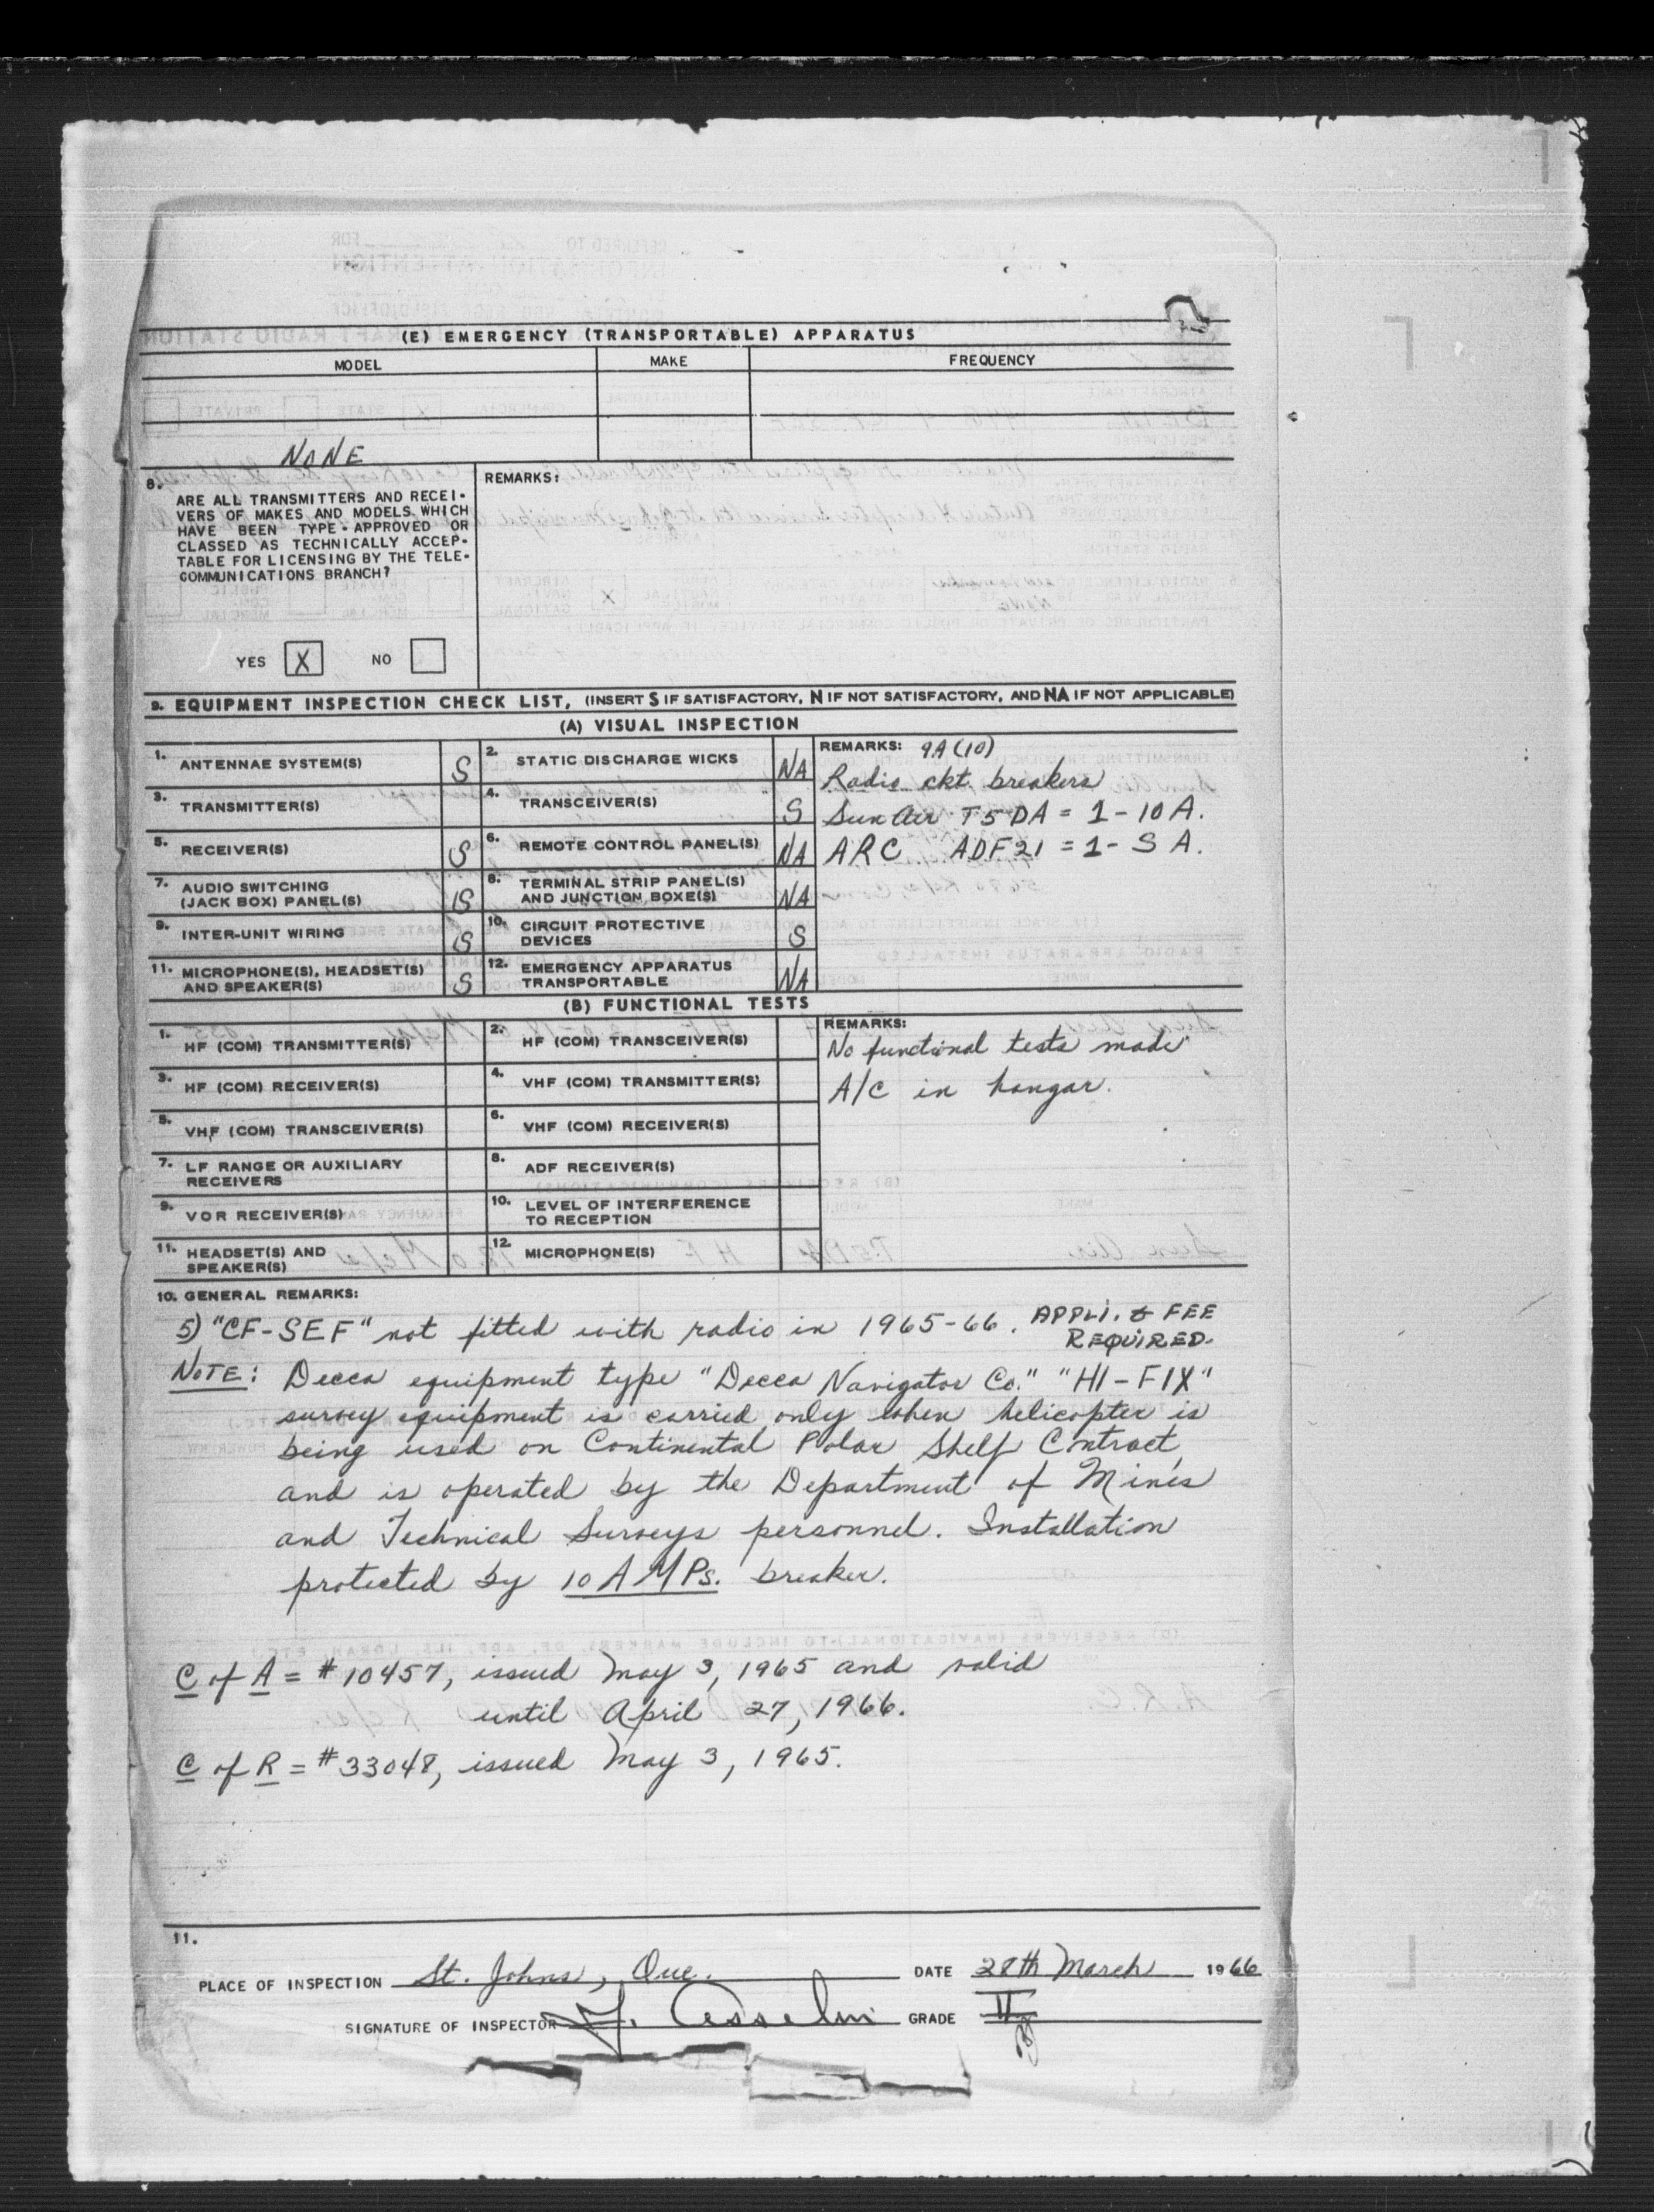 (E) EMERGENCY (TRANSPORTABLE) APPARATUS
MODEL MAKE FREQUENCY
NONE
8. ARE ALL TRANSMITTERS AND RECEI-
VERS OF MAKES AND MODELS WHICH
HAVE BEEN TYPE-APPROVED OR
CLASSED AS TECHNICALLY ACCEP-
TABLE FOR LICENSING BY THE TELE-
COMMUNICATIONS BRANCH?
YES X NO
REMARKS:
9. EQUIPMENT INSPECTION CHECK LIST, (INSERT S IF SATISFACTORY, N IF NOT SATISFACTORY, AND NA IF NOT APPLICABLE)
(A) VISUAL INSPECTION
1. ANTENNAE SYSTEM(S) S
2. STATIC DISCHARGE WICKS NA
3. TRANSMITTER(S)
4. TRANSCEIVER(S) S
5. RECEIVER(S) S
6. REMOTE CONTROL PANEL(S) NA
7. AUDIO SWITCHING
(JACK BOX) PANEL(S) S
8. TERMINAL STRIP PANEL(S)
AND JUNCTION BOXE(S) NA
9. INTER-UNIT WIRING S
10. CIRCUIT PROTECTIVE
DEVICES S
11. MICROPHONE(S), HEADSET(S)
AND SPEAKER(S) S
12. EMERGENCY APPARATUS
TRANSPORTABLE NA
REMARKS: 9A(10)
Radio ckt breakers
Sun Air T5DA = 1-10 A.
ARC ADF21 = 1- 5 A.
(B) FUNCTIONAL TESTS
1. HF (COM) TRANSMITTER(S)
2. HF (COM) TRANSCEIVER(S)
3. HF (COM) RECEIVER(S)
4. VHF (COM) TRANSMITTER(S)
5. VHF (COM) TRANSCEIVER(S)
6. VHF (COM) RECEIVER(S)
7. LF RANGE OR AUXILIARY
RECEIVERS
8. ADF RECEIVER(S)
9. VOR RECEIVER(S)
10. LEVEL OF INTERFERENCE
TO RECEPTION
11. HEADSET(S) AND
SPEAKER(S)
12. MICROPHONE(S)
REMARKS:
No functional tests made
A/C in hangar.
10. GENERAL REMARKS:
5) "CF-SEF" not fitted with radio in 1965-66. APPLI. & FEE
REQUIRED.
NOTE: Decca equipment type "Decca Navigator Co." "HI-FIX"
survey equipment is carried only when helicopter is
being used on Continental Polar Shelf Contract,
and is operated by the Department of Mines
and Technical Surveys personnel. Installation
protected by 10 AMPs. breaker.
C of A = # 10457, issued May 3, 1965 and valid
until April 27, 1966.
C of R = # 33048, issued May 3, 1965.
11.
PLACE OF INSPECTION St. Johns, Que. DATE 28th March 1966
SIGNATURE OF INSPECTOR GRADE II